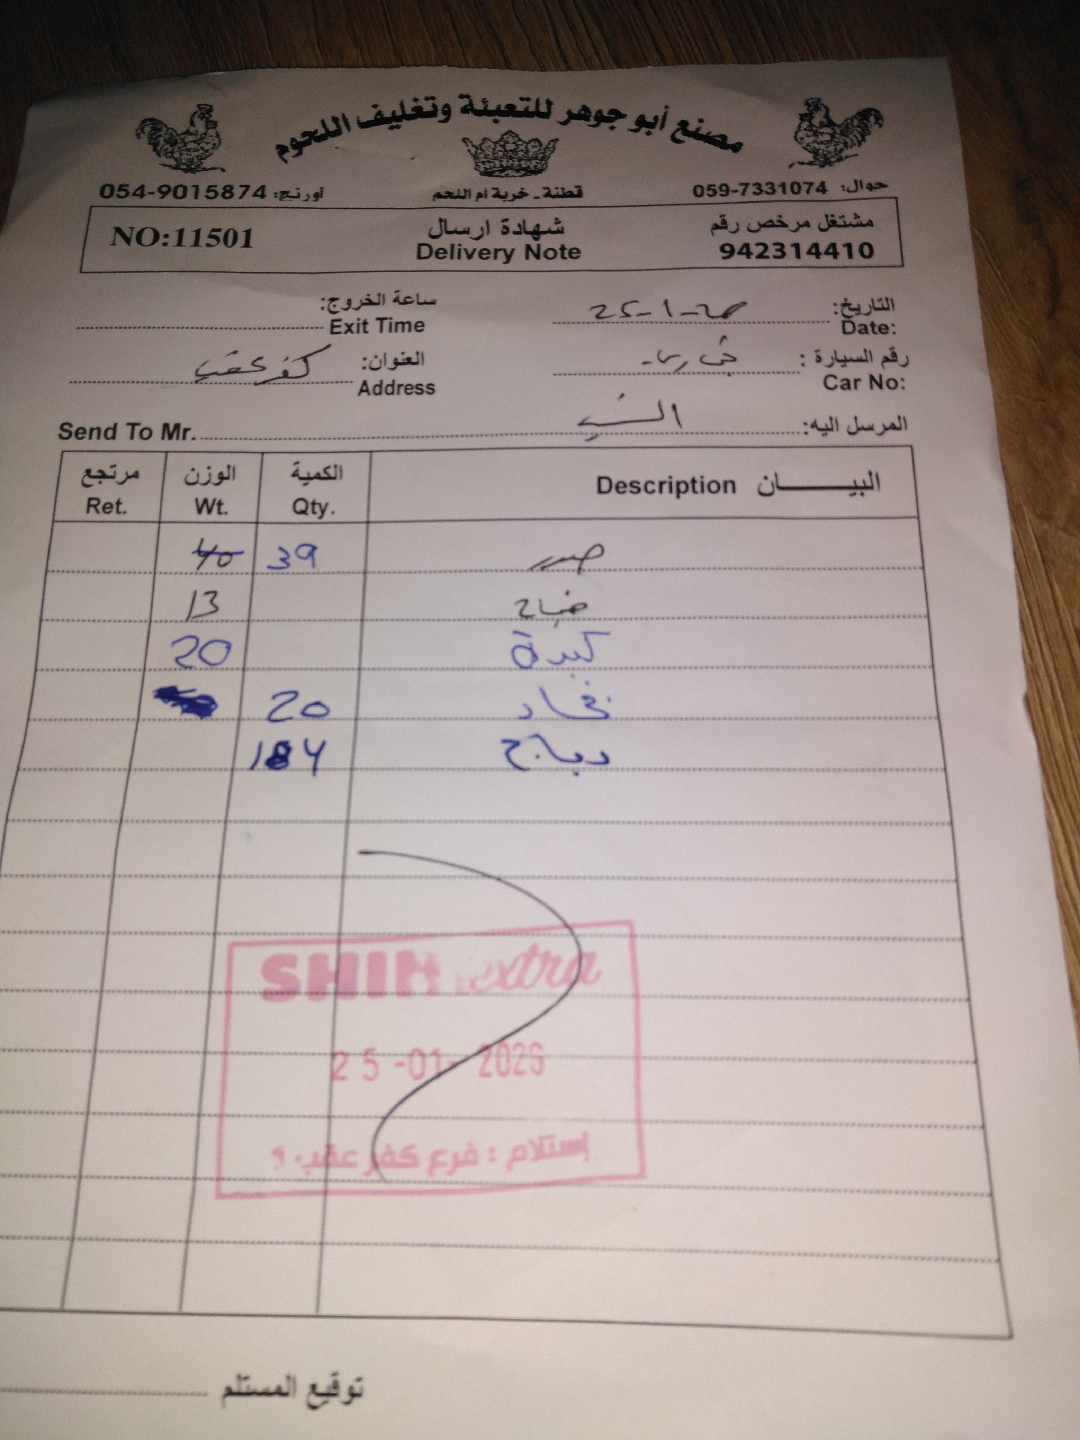 مصنع أبو جوهر للتعبئة وتغليف اللحوم
حوال: 059-7331074 قطنة - خربة ام اللحم اورنج: 054-9015874
مشتغل مرخص رقم شهادة ارسال NO:11501
942314410 Delivery Note
التاريخ: 25-1-26 ساعة الخروج:
Date: Exit Time
رقم السيارة : العنوان: كفر عقب
Car No: Address
المرسل اليه: Send To Mr.
البيـــــان Description الكمية الوزن مرتجع
Qty. Wt. Ret.
صدر 39 40
13
كبدة 20
فخاد 20
دجاج 184
SHINI extra
25-01-2026
إستلام : فرع كفر عقب
توقيع المستلم